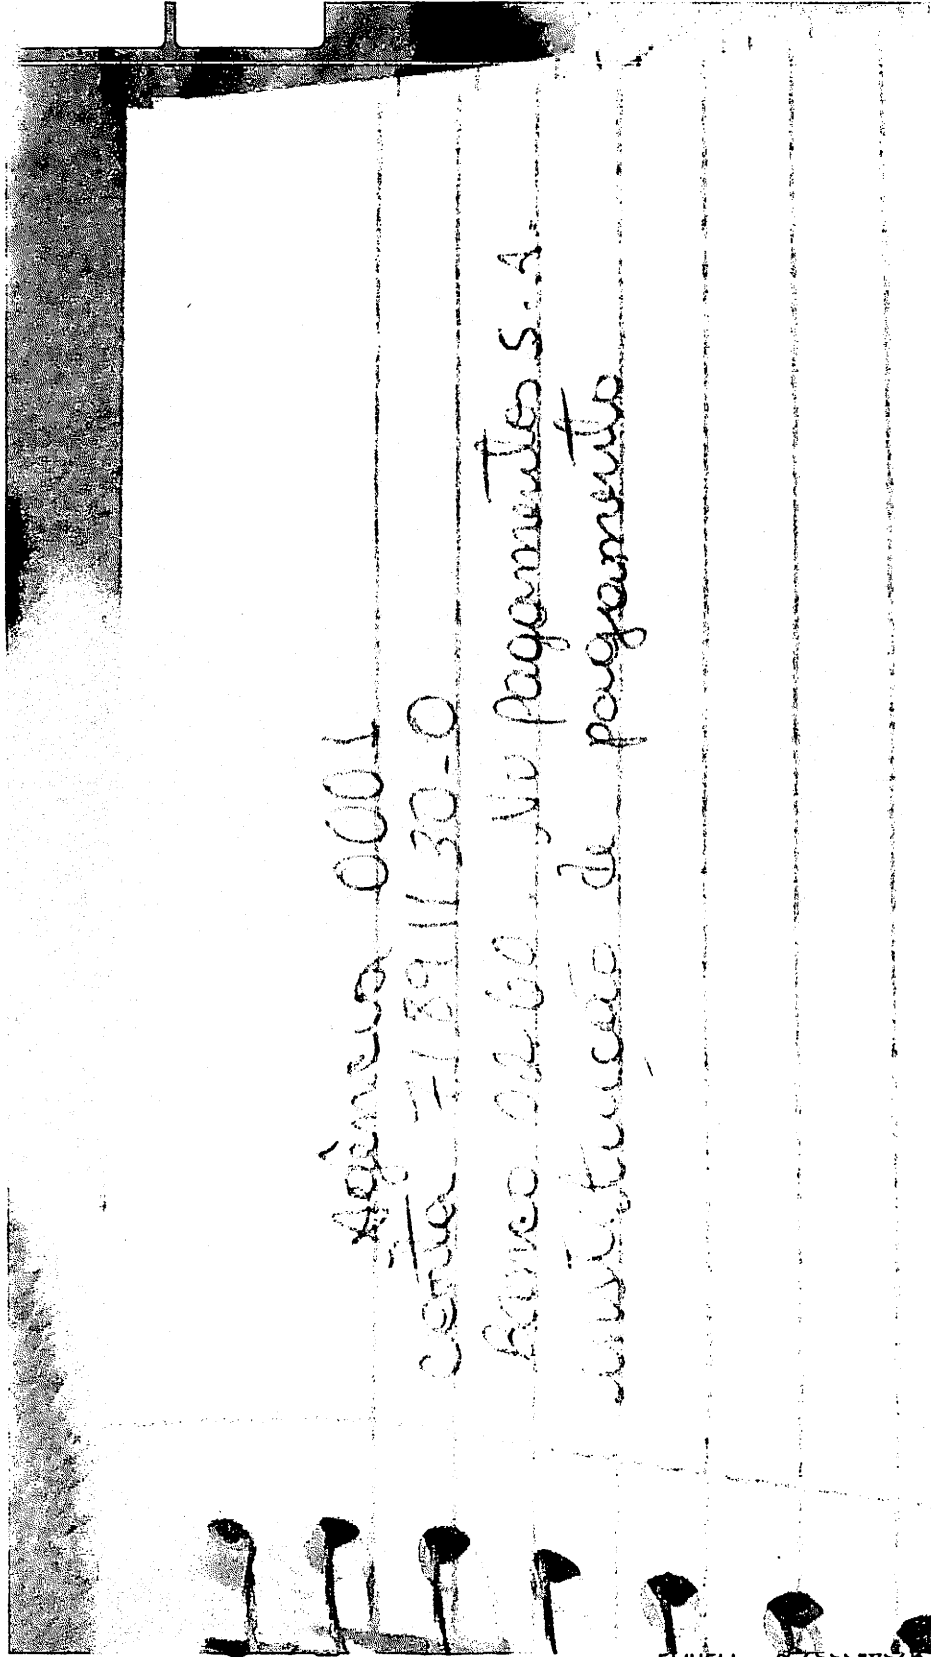 Agência 0001
Conta 71891130-0
Banco 0260 Nu Pagamentos S.A.
instituicão de pagamento